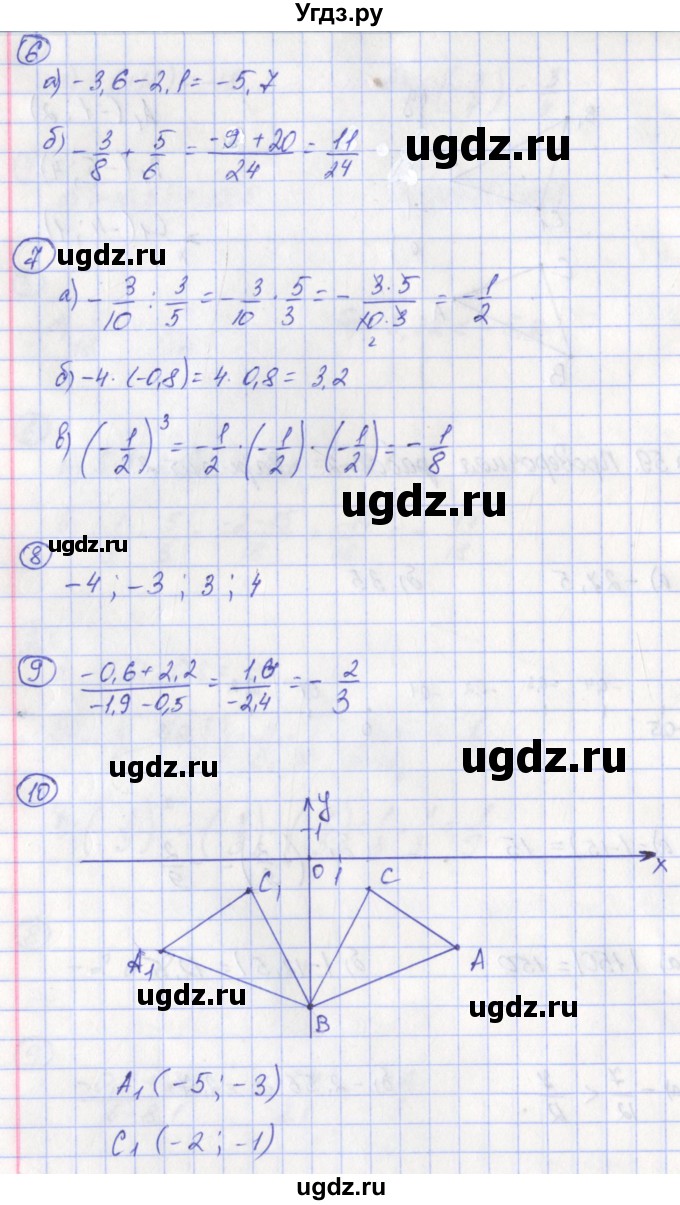 Угдз.ру
6
а) -3,6 - 2,1 = -5,7
б) -3/8 + 5/6 = (-9+20)/24 = 11/24
ugdz.ru
7
ugdz.ru
а) -3/10 : 3/5 = -3/10 · 5/3 = -(3·5)/(10·3) = -1/2
2
б) -4 · (-0,8) = 4 · 0,8 = 3,2
в) (-1/2)³ = -1/2 · (-1/2) · (-1/2) = -1/8
ugdz.ru
8
ugdz.ru
-4 ; -3 ; 3 ; 4
9
(-0,6+2,2)/(-1,9-0,5) = 1,6/-2,4 = -2/3
ugdz.ru
ugdz.ru
10
y
1
0 1 x
C₁ C
A₁ A
B
ugdz.ru
ugdz.ru
A₁ (-5 ; -3)
C₁ (-2 ; -1)
ugdz.ru